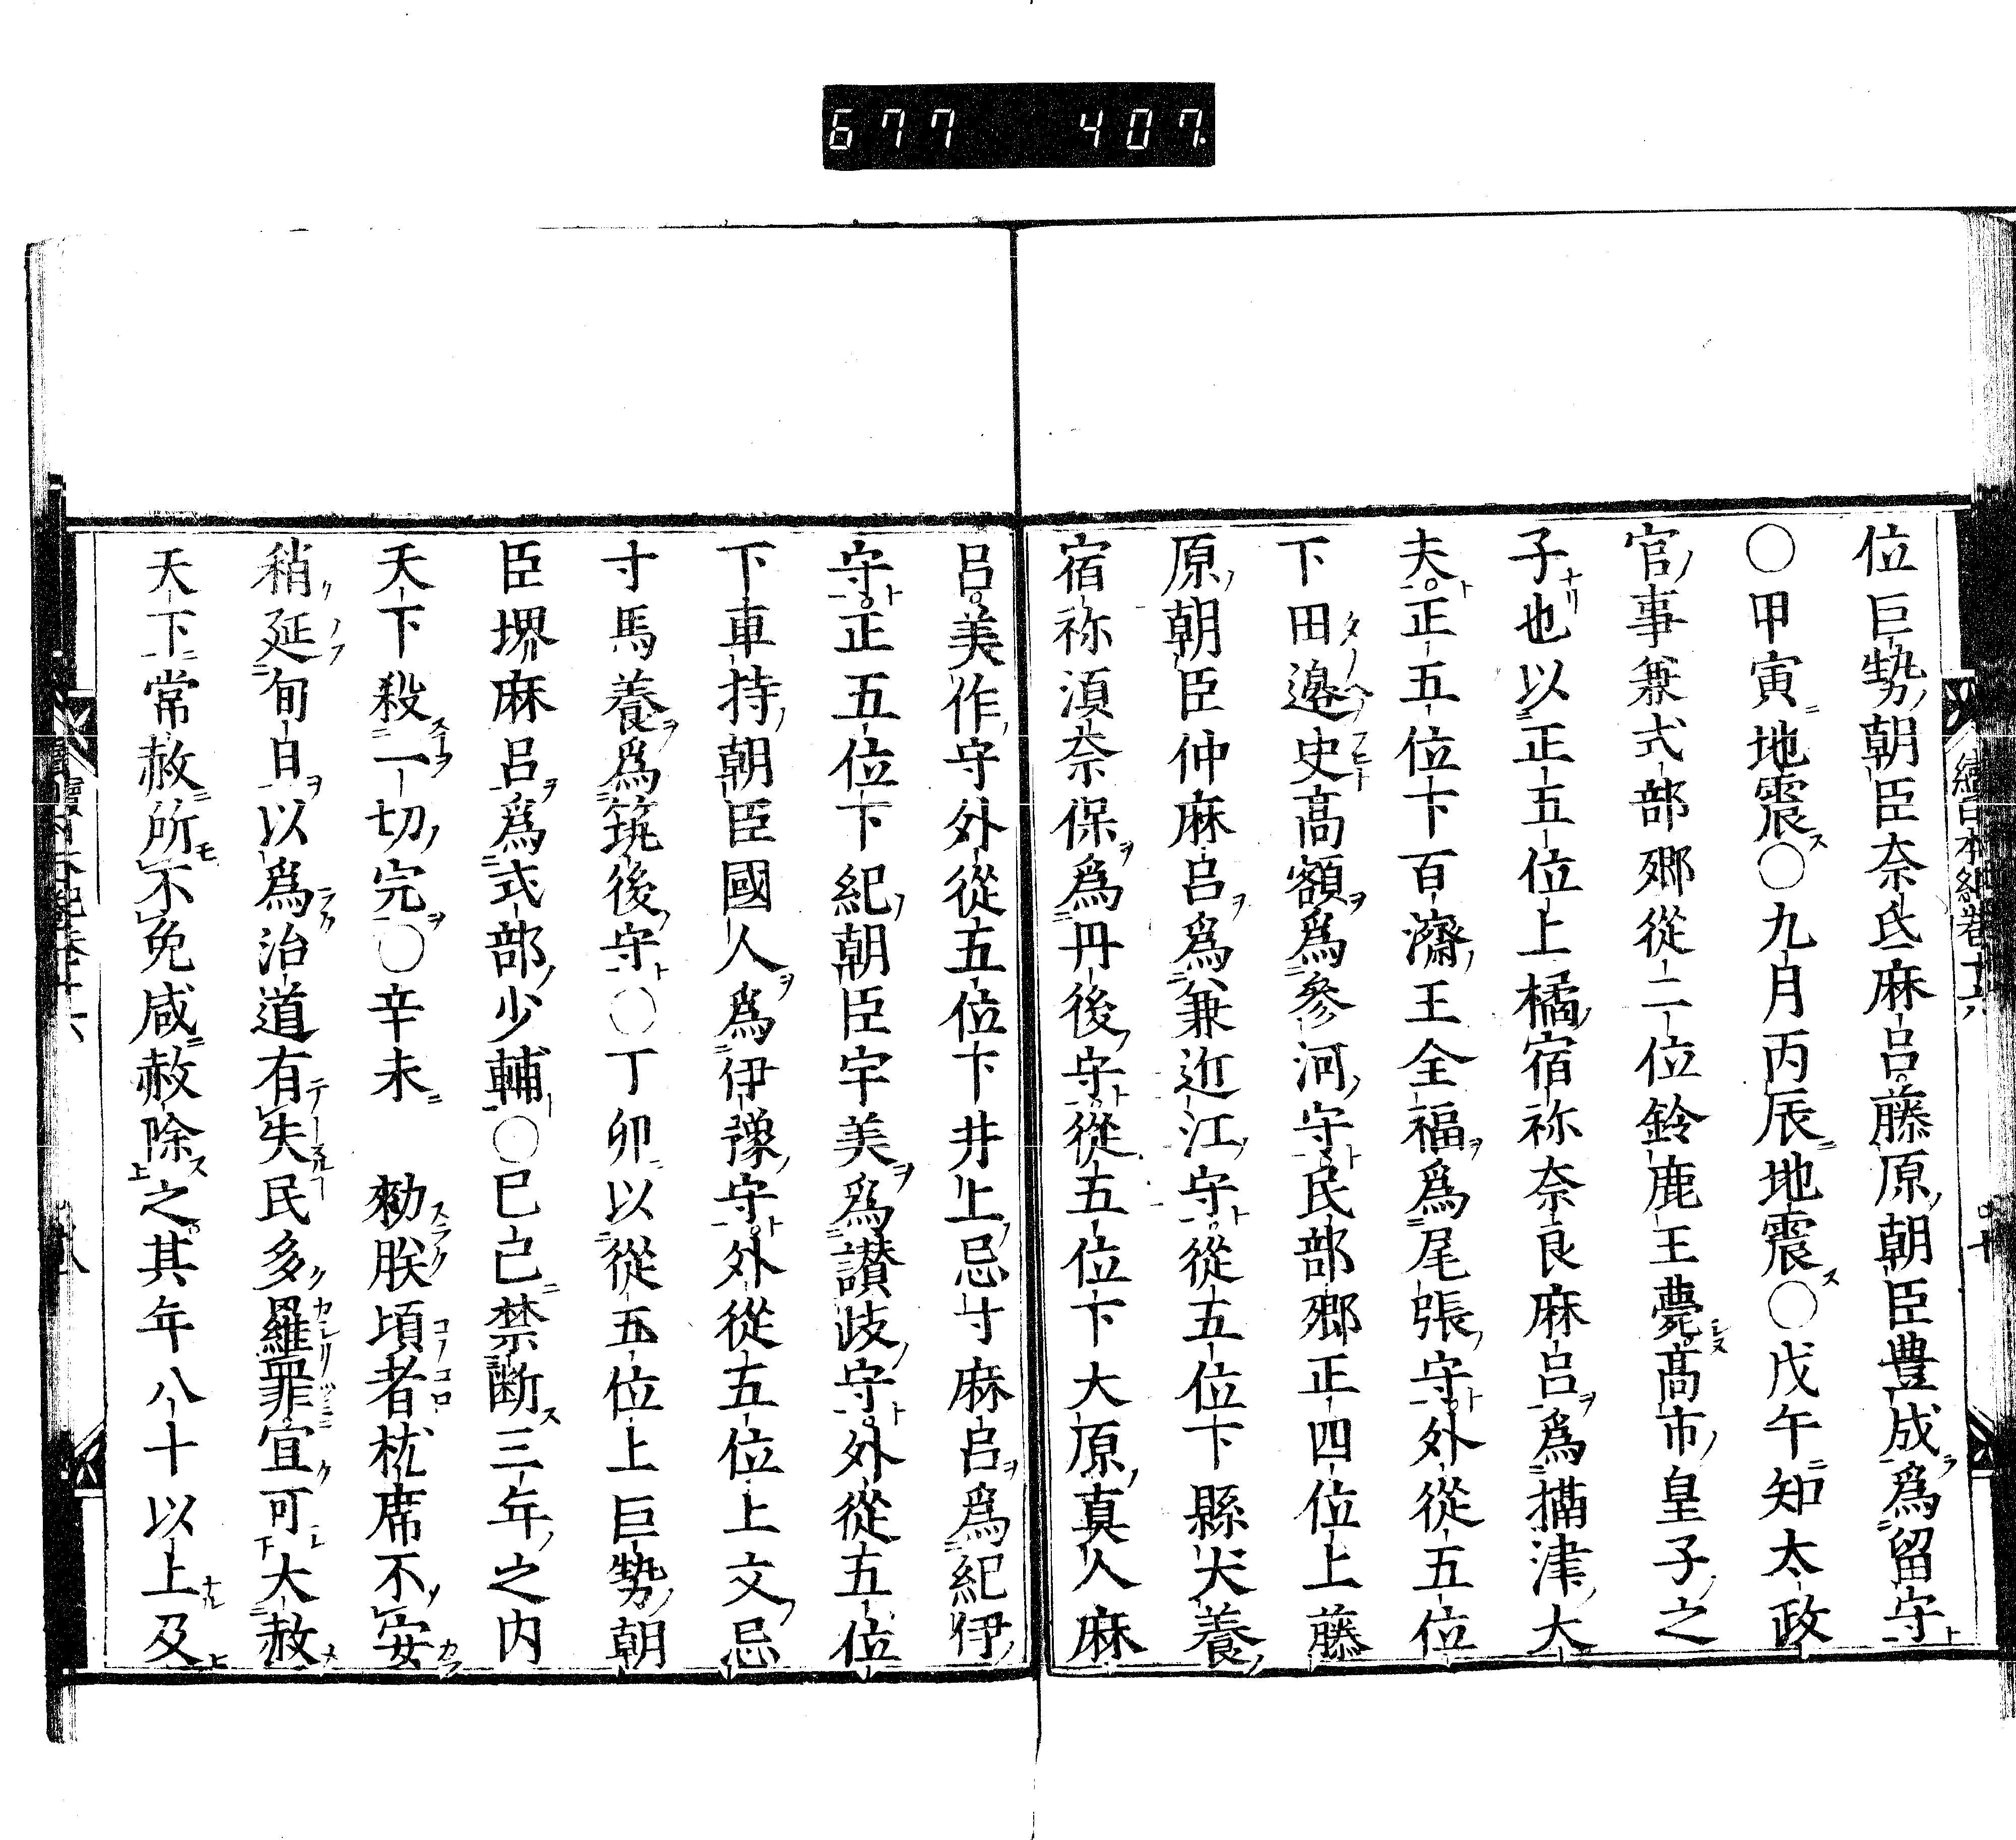 677 407.
續日本紀卷十六
位巨勢朝臣奈氐麻呂藤原朝臣豊成爲留守
○甲寅地震○九月丙辰地震○戊午知太政
官事兼式部卿從二位鈴鹿王薨高市皇子之
子也以正五位上橘宿祢奈良麻呂爲攝津大
夫正五位下百濟王全福爲尾張守外從五位
下田邊史髙額爲參河守民部卿正四位上藤
原朝臣仲麻呂爲兼近江守從五位下縣犬養
宿祢湏奈保爲丹後守從五位下大原真人麻
呂美作守外從五位下井上忌寸麻呂爲紀伊
守正五位下紀朝臣宇美爲讃岐守外從五位
下車持朝臣國人爲伊豫守外從五位上文忌
寸馬養爲筑後守○丁卯以從五位上巨勢朝
臣堺麻呂爲式部少輔○巳巳禁断三年之内
天下殺一切完○辛未 勑朕頃者枕席不安
稍延旬日以爲治道有失民多羅罪宜可大赦
天下常赦所不免咸赦除之其年八十以上及